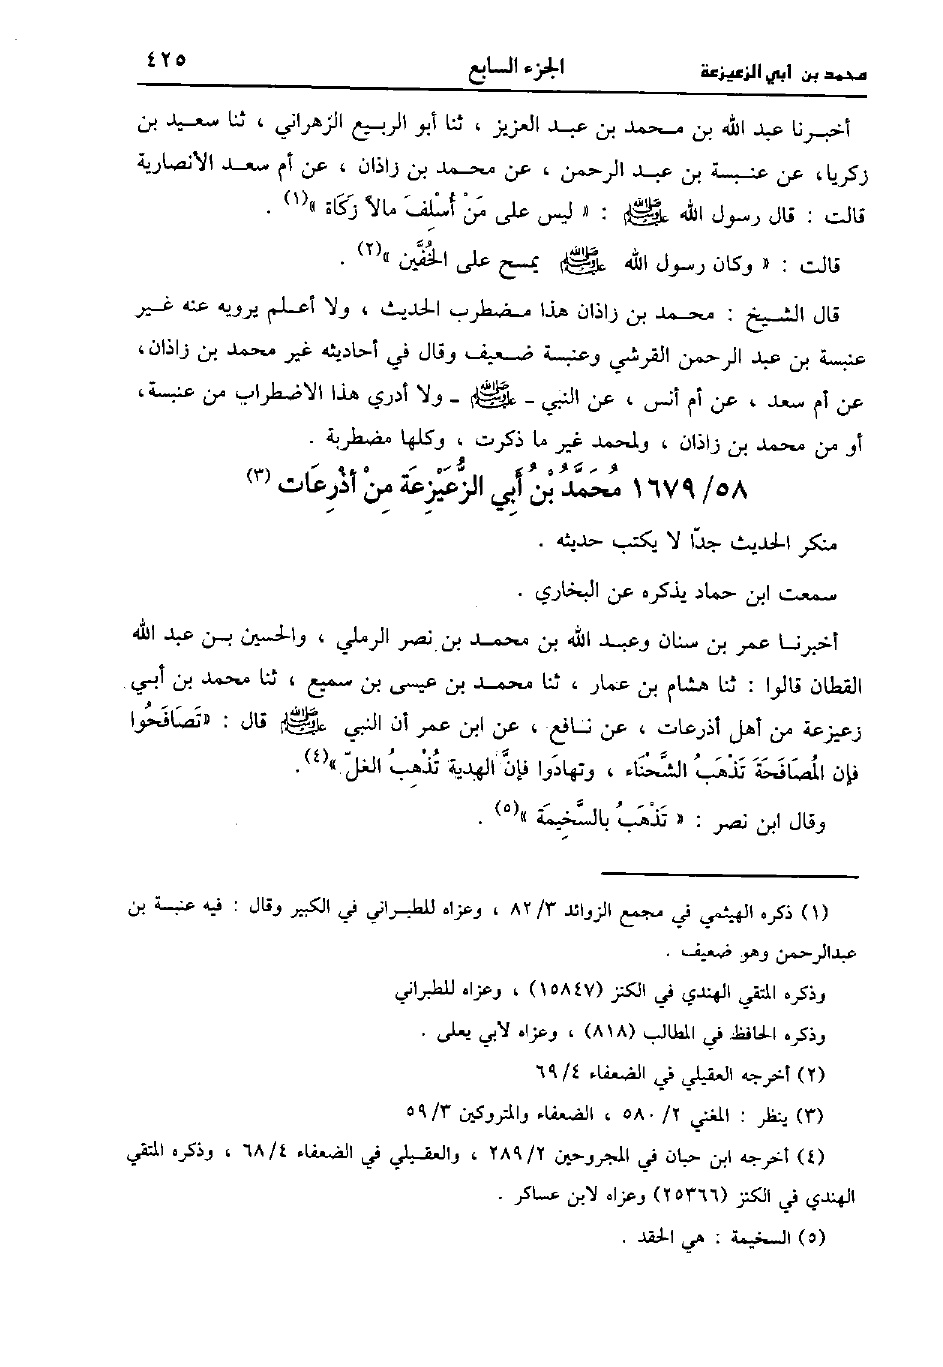 محمد بن أبي الزعيزعة الجزء السابع ٤٢٥
أخبرنا عبد الله بن محمد بن عبد العزيز ، ثنا أبو الربيع الزهراني ، ثنا سعيد بن
زكريا، عن عنبسة بن عبد الرحمن ، عن محمد بن زاذان ، عن أم سعد الأنصارية
قالت : قال رسول الله ﷺ : « ليس على مَنْ أُسْلِفَ مالاً زكَاة »(١) .
قالت : « وكان رسول الله ﷺ يمسح على الخُفَّين »(٢) .
قال الشيخ : محمد بن زاذان هذا مضطرب الحديث ، ولا أعلم يرويه عنه غير
عنبسة بن عبد الرحمن القرشي وعنبسة ضعيف وقال في أحاديثه غير محمد بن زاذان،
عن أم سعد ، عن أم أنس ، عن النبي - ﷺ - ولا أدري هذا الاضطراب من عنبسة،
أو من محمد بن زاذان ، ولمحمد غير ما ذكرت ، وكلها مضطربة .
١٦٧٩/٥٨ مُحَمَّدُ بْنُ أَبِي الزُّعَيْزِعَة مِنْ أَذْرِعَات (٣)
منكر الحديث جدّا لا يكتب حديثه .
سمعت ابن حماد يذكره عن البخاري .
أخبرنا عمر بن سنان وعبد الله بن محمد بن نصر الرملي ، والحسين بن عبد الله
القطان قالوا : ثنا هشام بن عمار ، ثنا محمد بن عيسى بن سميع ، ثنا محمد بن أبي
زعيزعة من أهل أذرعات ، عن نافع ، عن ابن عمر أن النبي ﷺ قال : «تَصَافَحُوا
فإن المُصَافَحَةَ تَذْهَبُ الشَّحْنَاء ، وتهادَوا فإنَّ الهدية تُذْهِبُ الغلّ »(٤).
وقال ابن نصر : « تَذْهَبُ بالسَّخِيمَة »(٥) .
(١) ذكره الهيثمي في مجمع الزوائد ٨٢/٣ ، وعزاه للطبراني في الكبير وقال : فيه عنبسة بن
عبدالرحمن وهو ضعيف .
وذكره المتقي الهندي في الكنز (١٥٨٤٧) ، وعزاه للطبراني
وذكره الحافظ في المطالب (٨١٨) ، وعزاه لأبي يعلى .
(٢) أخرجه العقيلي في الضعفاء ٦٩/٤
(٣) ينظر : المغني ٥٨٠/٢ ، الضعفاء والمتروكين ٥٩/٣
(٤) أخرجه ابن حبان في المجروحين ٢٨٩/٢ ، والعقيلي في الضعفاء ٦٨/٤ ، وذكره المتقي
الهندي في الكنز (٢٥٣٦٦) وعزاه لابن عساكر .
(٥) السخيمة : هي الحقد .